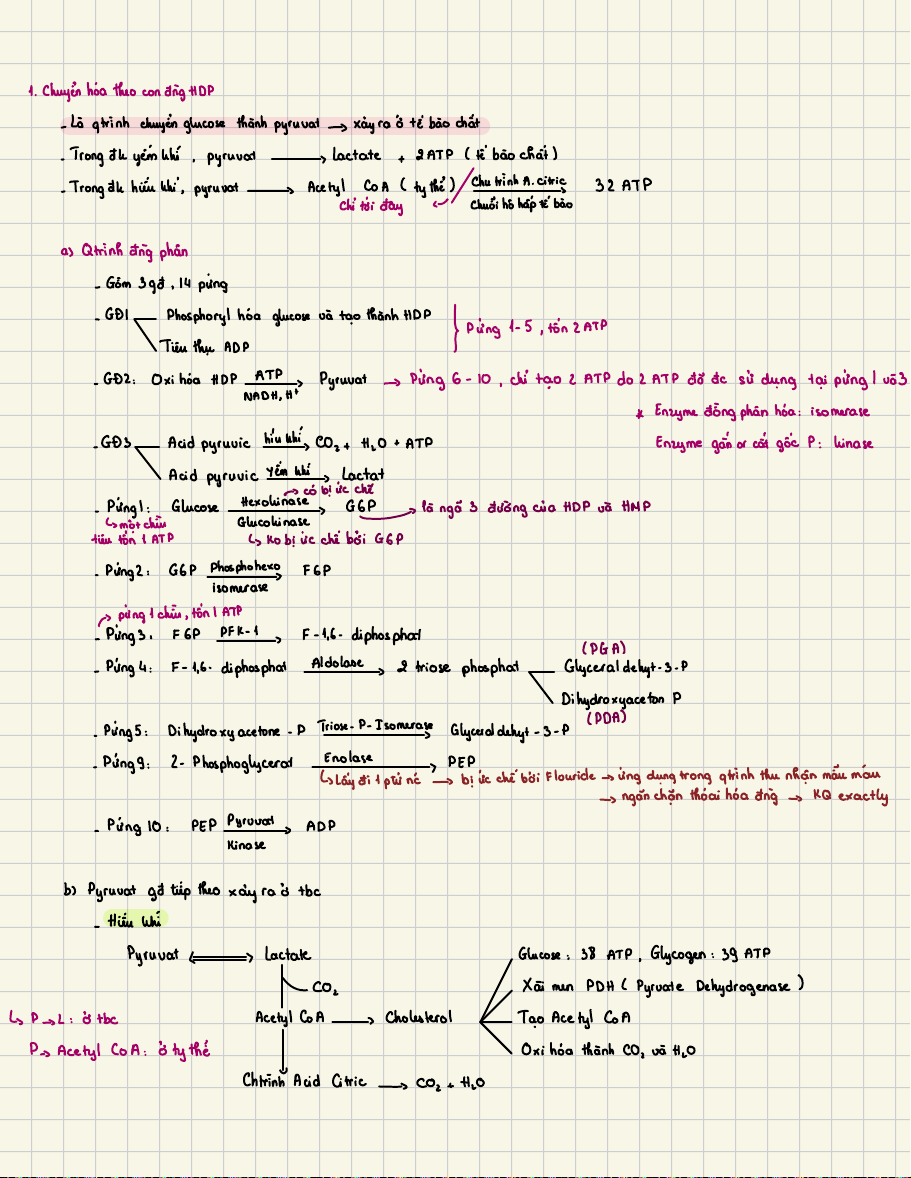 1. Chuyển hóa theo con đng HDP
- Là qtrình chuyển glucose thành pyruvat → xảy ra ở tế bào chất
- Trong đk yếm khí , pyruvat → lactate + 2ATP ( tế bào chất )
- Trong đk hiếu khí, pyruvat → Acetyl CoA ( ty thể ) Chu trình A. citric → 32 ATP
chỉ tới đây
Chuỗi hô hấp tế bào
a) Qtrình đng phân
- Gồm 3 gđ , 14 pứng
- GĐ1 Phosphoryl hóa glucose và tạo thành HDP
Tiêu thụ ADP
Pứng 1-5 , tốn 2 ATP
- GĐ2: Oxi hóa HDP ATP → Pyruvat → Pứng 6 - 10 , chỉ tạo 2 ATP do 2 ATP đã đc sử dụng tại pứng 1 và 3
NADH, H⁺
* Enzyme đồng phân hóa: isomerase
- GĐ3 Acid pyruvic híu khí → CO₂ + H₂O + ATP
Enzyme gắn or cắt gốc P: kinase
Acid pyruvic yếm khí → Lactat
↪ có bị ức chế
- Pứng 1: Glucose Hexokinase → G6P → là ngã 3 đường của HDP và HMP
↪ một chìu
Glucokinase
tiêu tốn 1 ATP
↪ ko bị ức chế bởi G6P
- Pứng 2: G6P Phosphohexo → F6P
isomerase
↪ pứng 1 chìu, tốn 1 ATP
- Pứng 3: F6P PFK-1 → F-1,6- diphosphat
- Pứng 4: F-1,6- diphosphat Aldolase → 2 triose phosphat Glyceraldehyt-3-P
(PGA)
Dihydroxyaceton P
(PDA)
- Pứng 5: Dihydroxyacetone - P Triose-P-Isomerase → Glyceraldehyt-3-P
- Pứng 9: 2- Phosphoglycerat Enolase → PEP
↪ Lấy đi 1 ptử nc → bị ức chế bởi Flouride → ứng dụng trong qtrình thu nhận mẫu máu
→ ngăn chặn thoái hóa đng → KQ exactly
- Pứng 10: PEP Pyruvat → ADP
Kinase
b) Pyruvat gđ tiếp theo xảy ra ở tbc
- Hiếu khí
Pyruvat ⟺ Lactate
Glucose: 38 ATP , Glycogen: 39 ATP
CO₂
Xài men PDH ( Pyruvate Dehydrogenase )
↪ P → L: ở tbc
Acetyl CoA → Cholesterol
Tạo Acetyl CoA
P → Acetyl CoA: ở ty thể
Oxi hóa thành CO₂ và H₂O
Chtrình Acid Citric → CO₂ + H₂O